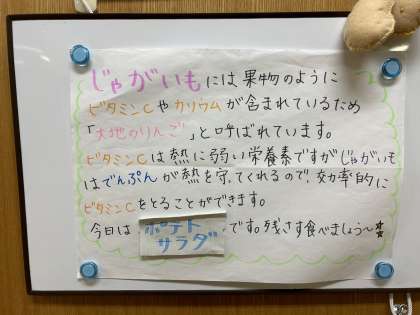 じゃがいもには、果物のように
ビタミンCやカリウムが含まれているため
「大地のりんご」と呼ばれています。
ビタミンCは熱に弱い栄養素ですがじゃがいも
はでんぷんが熱を守ってくれるので、効率的に
ビタミンCをとることができます。
今日はポテトサラダです。残さず食べましょう〜